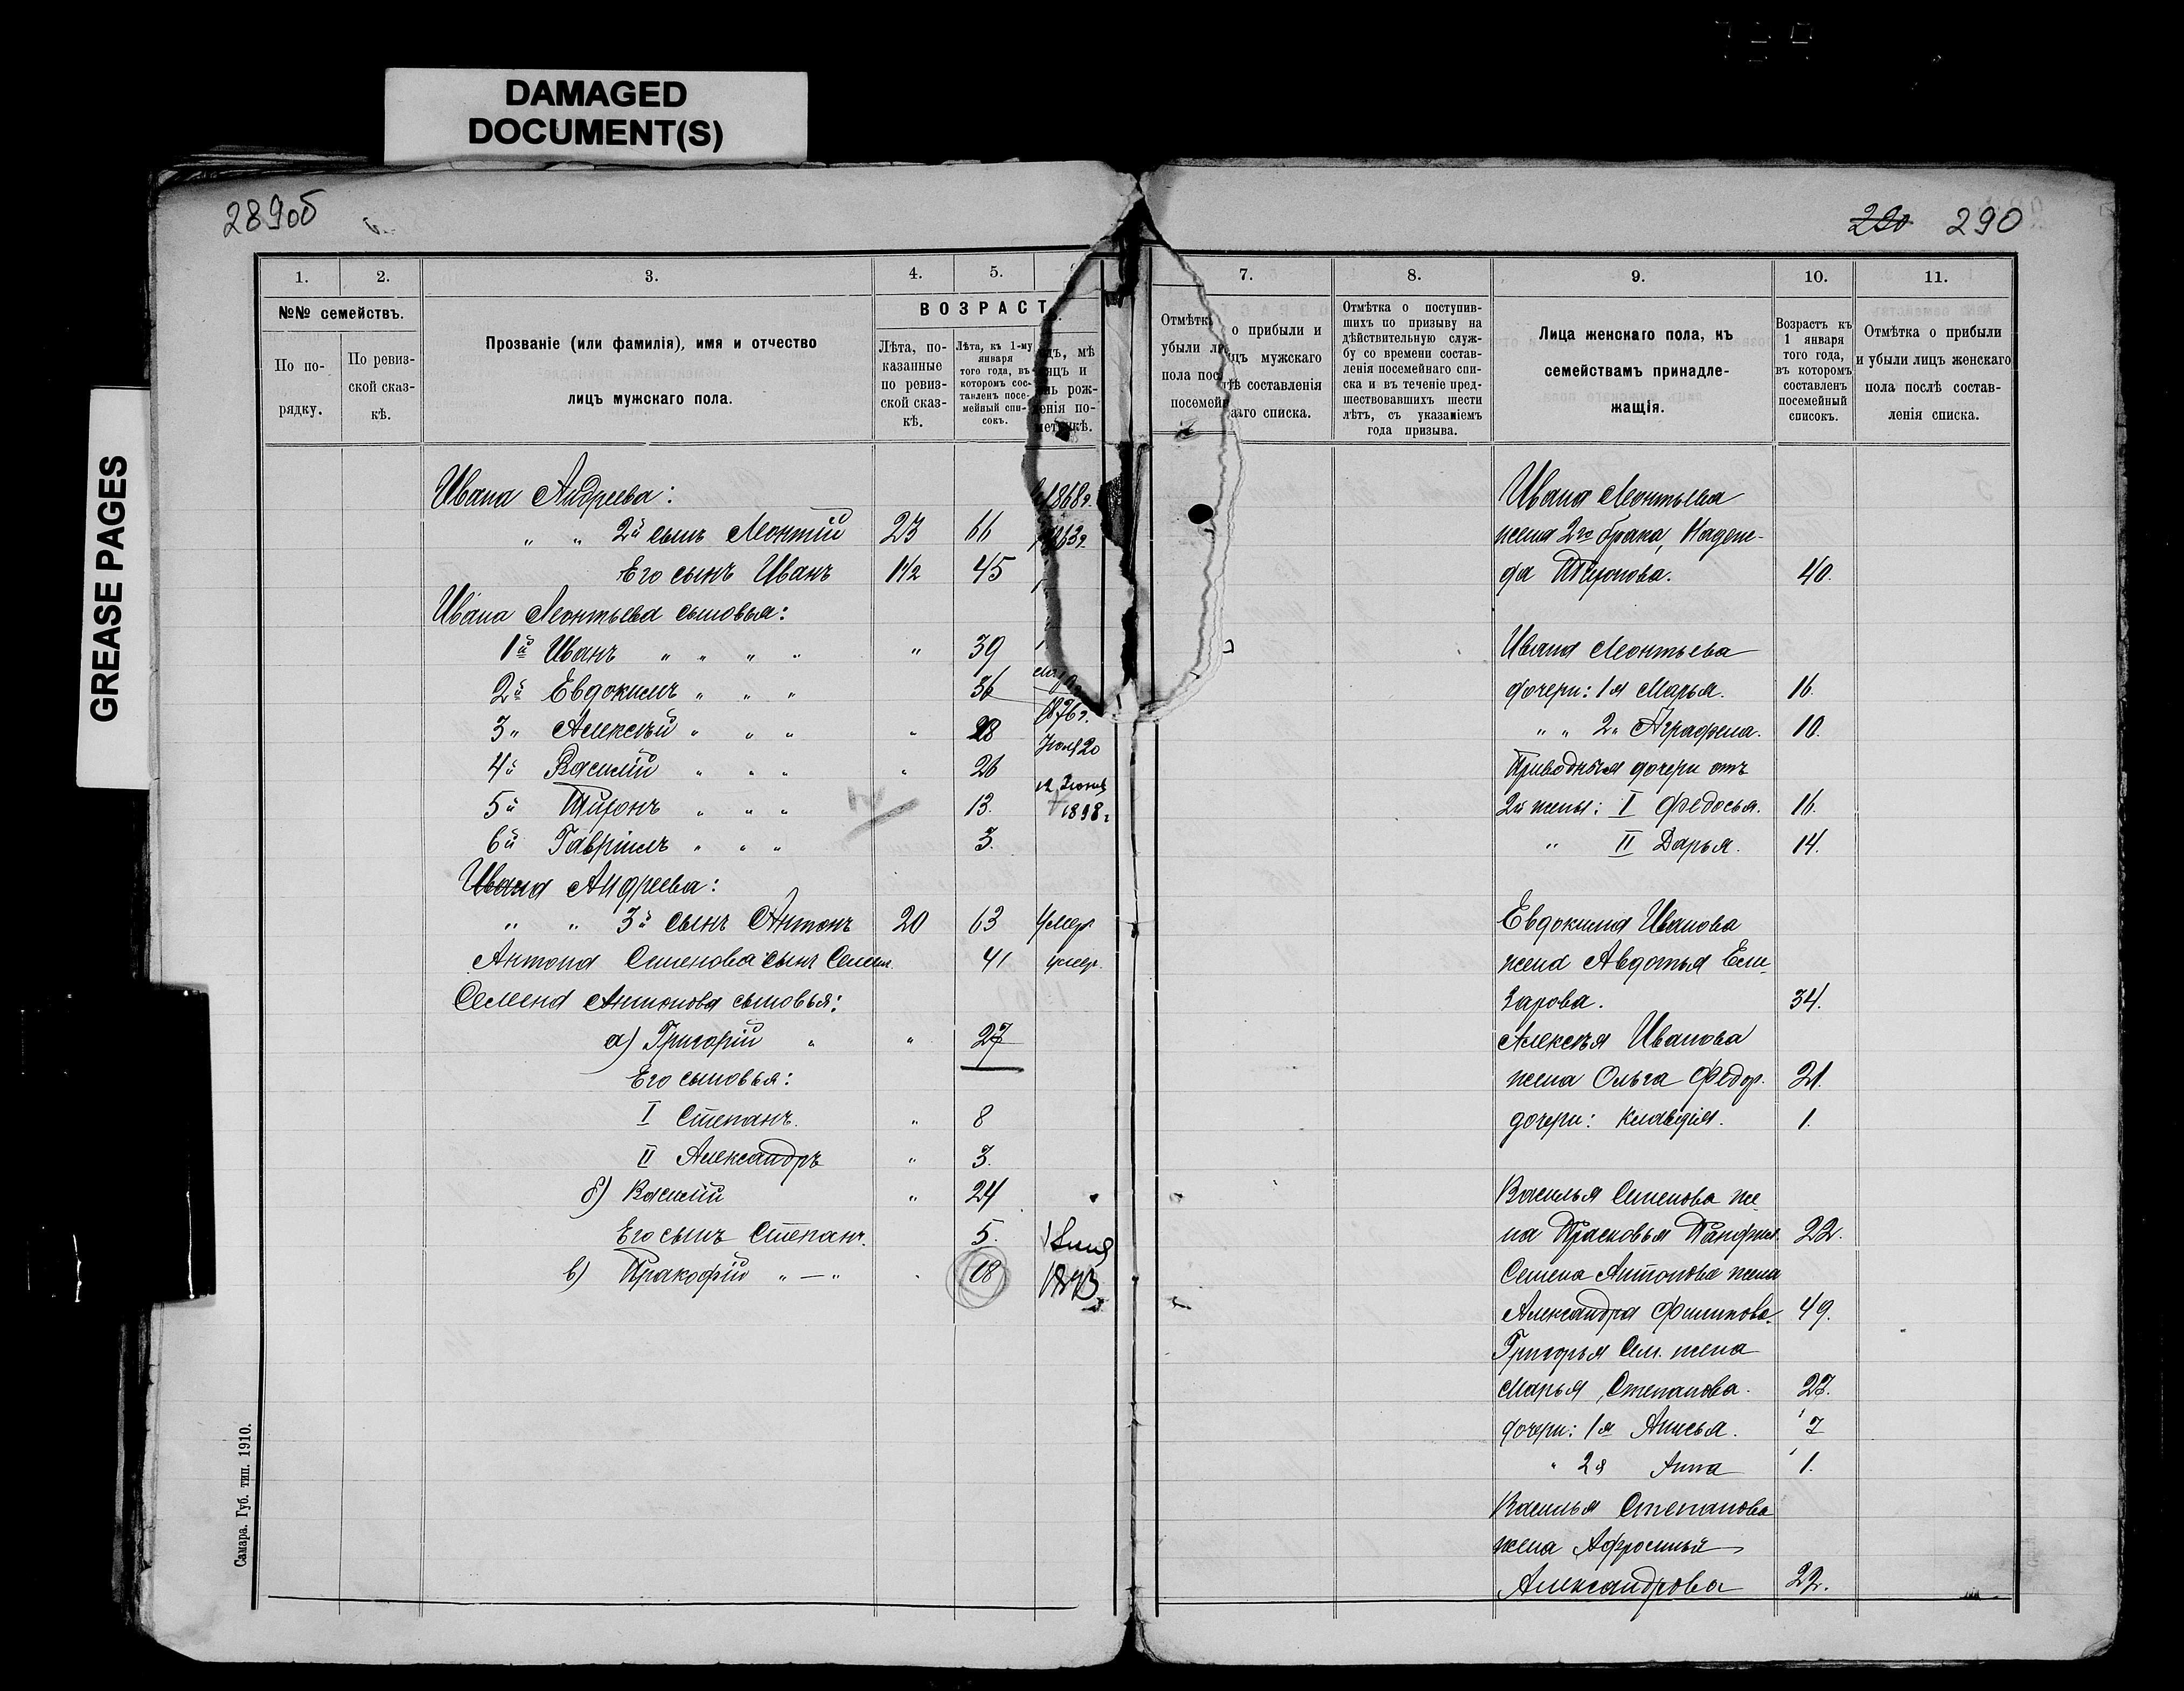 DAMAGED
DOCUMENT(S)
GREASE PAGES
289об
290 290
1. 2. 3. 4. 5.
№№ семействъ.
По по-
рядку.
По ревиз-
ской сказ-
кѣ.
Прозваніе (или фамилія), имя и отчество
лицъ мужскаго пола.
ВОЗРАСТ
Лѣта, по-
казанные
по ревиз-
ской сказ-
кѣ.
Лѣта, къ 1-му
января
того года, въ
которомъ сос-
тавленъ посе-
мейный спи-
сокъ.
дъ, мѣ
яцъ и
нь рож-
енія по-
метрикѣ.
Ивана Андреева: 1868г.
" " 2й сынъ Леонтій 23 66
Его сынъ Иванъ 1 1/2 45
Ивана Леонтьева сыновья:
1й Иванъ " " " " " 39
2й Евдокимъ " " " 36
3" Алексѣй " " " " 28 1876г.
4й Василій " " " " 26
5й Тихонъ " " " 13. 1898г
6й Гавріилъ " " " 3.
Ивана Андреева:
" " 3й сынъ Антонъ 20 63 умер
Антона Семенова сынъ Семен 41 умер.
Семена Антонова сыновья:
а) Григорій " " 27
Его сыновья:
I Степанъ. " 8
II Александръ " 3.
б) Василій " 24
Его сынъ Степанъ. 5.
в) Пракофій " — " 18 1893
Самара. Губ. тип. 1910.
7. 8. 9. 10. 11.
Отмѣтка о прибыли и
убыли лицъ мужскаго
пола послѣ составленія
посемейнаго списка.
Отмѣтка о поступив-
шихъ по призыву на
дѣйствительную служ-
бу со времени состав-
ленія посемейнаго спи-
ска и въ теченіе пред-
шествовавшихъ шести
лѣтъ, съ указаніемъ
года призыва.
Лица женскаго пола, къ
семействамъ принадле-
жащія.
Возрастъ къ
1 января
того года,
въ которомъ
составленъ
посемейный
списокъ.
Отмѣтка о прибыли
и убыли лицъ женскаго
пола послѣ состав-
ленія списка.
Ивана Леонтьева
жена 2го брака, Надеж-
да 40.
Ивана Леонтьева
дочери: 1я Марья. 16.
" " 2я Аграфена. 10.
Приводныя дочери отъ
2й жены: I Федосья. 16.
" II Дарья. 14.
Евдокима Иванова
жена Авдотья Ели-
зарова. 34.
Алексѣя Иванова
жена Ольга Федор. 21.
дочери: Клавдія. 1.
Василья Семенова же-
на Прасковья Панфил 22.
Семена Антонова жена
Александра Филипова. 49.
Григорья Сем. жена
Марья Степанова. 27.
дочери: 1я Анисья. 7
" 2я Анна 1.
Василья Степанова
жена Афросинья
Александрова 22.